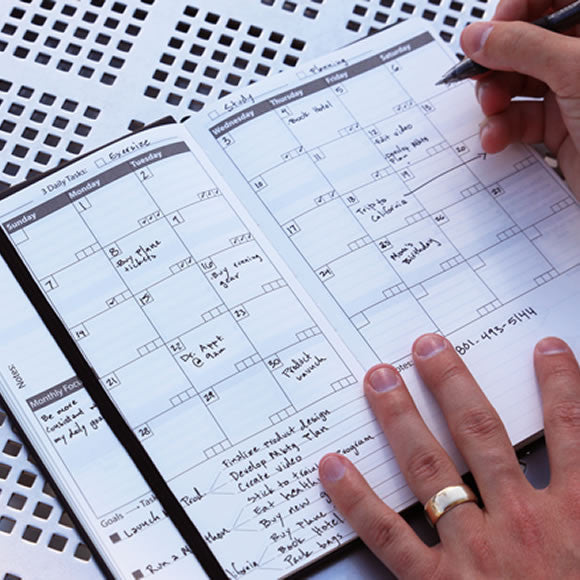 3 Daily Tasks: Exercise
Study
Planning
Sunday Monday Tuesday
Wednesday Thursday Friday Saturday
1 2
3 4 5 6
Book Hotel
7 8 9
Buy plane
tickets
10 11 12 13
Edit video
14 15 16
Buy evening
gear
17 18 19 20
Trip to
California
21 22 23
Dr. Appt
@ 9am
24 25 26
Mom's
Birthday
28 29 30
Product
Launch
Notes:
Monthly Focus
Be more
consistent
my daily
Goals Task
Launch
Run a
Prod
Finalize product design
Develop Mktg Plan
Create video
Stick to training program
Eat health
Buy new
Buy plane
Book Hotel
Pack bags
Notes:
801-493-5144